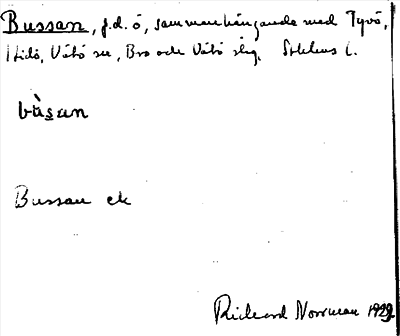 Bussan, f.d. ö, sammanhängande med Tyvö,
Hidö, Vätö sn, Bro och Vätö skg. Sthlms l.
bùsan
Bussan ek
Richard Norrman 1929